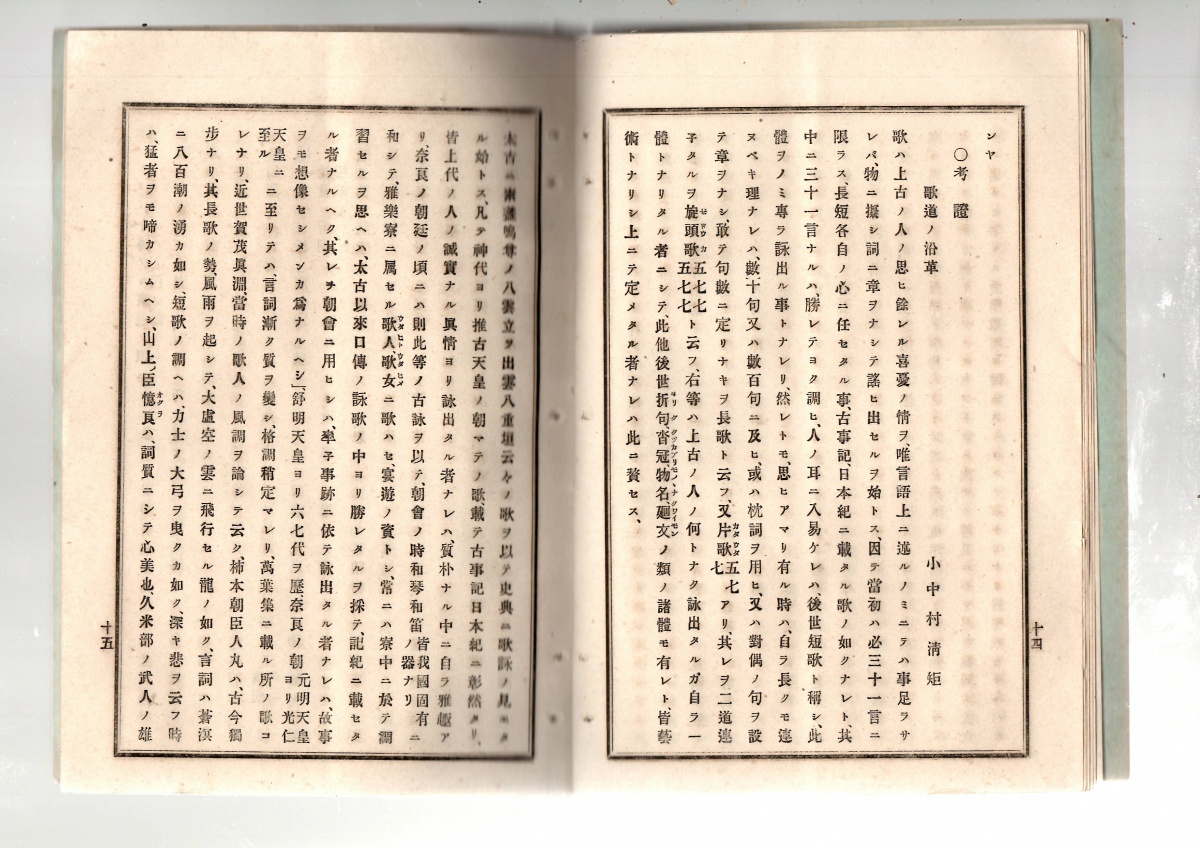 ンヤ
〇考證
歌道ノ沿革
小中村淸矩
歌ハ上古ノ人ノ思ヒ餘レル喜憂ノ情ヲ、唯言語上ニ述ルノミニテハ事足ラサ
レバ、物ニ擬シ詞ニ章ヲナシテ謠ヒ出セルヲ始トス、因テ當初ハ必三十一言ニ
限ラス、長短各自ノ心ニ任セタル事、古事記、日本紀ニ載タル歌ノ如クナレト、其
中ニ三十一言ナルハ、勝レテヨク調ヒ、人ノ耳ニ入易ケレハ、後世短歌ト稱シ、此
體ヲノミ專ラ詠出ル事トナレリ、然レトモ、思ヒアマリ有ル時ハ、自ラ長クモ連
ヌベキ理ナレハ、數十句又ハ數百句ニ及ヒ、或ハ枕詞ヲ用ヒ、又ハ對偶ノ句ヲ設
テ章ヲナシ、敢テ句數ニ定リナキヲ長歌ト云フ、又片歌カタウタ五七七アリ、其レヲ二道連
子タルヲ旋頭歌セドウカ五七七五七七ト云フ、右等ハ上古ノ人ノ何トナク詠出タルガ自ラ一
體トナリタル者ニシテ、此他後世折句ヲリク沓冠クツカブリ物名モノヽナ、廻文クワイモンノ類ノ諸體モ有レト、皆藝
術トナリシ上ニテ定メタル者ナレハ此ニ贅セス、
十四
太古ニ素盞嗚尊ノ八雲立ツ出雲八重垣云々ノ歌ヲ以テ史典ニ歌詠ノ見エタ
ル始トス、凡テ神代ヨリ推古天皇ノ朝マテノ歌載テ古事記日本紀ニ彰然タリ、
皆上代ノ人ノ誠實ナル眞情ヨリ詠出タル者ナレハ、質朴ナル中ニ自ラ雅趣ア
リ、奈良ノ朝廷ノ頃ニハ則此等ノ古詠ヲ以テ、朝會ノ時和琴和笛皆我國固有ノ器ナリニ
和シテ、雅樂寮ニ属セル歌人ウタヒト、歌女ウタヒメニ歌ハセ、宴遊ノ資トシ、常ニハ寮中ニ於テ調
習セルヲ思ヘハ、太古以來口傳ノ詠歌ノ中ヨリ勝レタルヲ採テ、記紀ニ載セタ
ル者ナルヘク、其レヲ朝會ニ用ヒシハ、率子事跡ニ依テ詠出タル者ナレハ、故事
ヲモ想像セシメンカ爲ナルヘシ」舒明天皇ヨリ六七代ヲ歷、奈良ノ朝元明天皇ヨリ光仁
天皇ニ至ルニ至リテハ、言詞漸ク質ヲ變シ、格調稍定マレリ、萬葉集ニ載ル所ノ歌コ
レナリ、近世賀茂眞淵、當時ノ歌人ノ風調ヲ論シテ云ク、柿本朝臣人丸ハ、古今獨
步ナリ、其長歌ノ勢、風雨ヲ起シテ、大虛空ノ雲ニ飛行セル龍ノ如ク、言詞ハ蒼溟
ニ八百潮ノ湧カ如シ、短歌ノ調ヘハ、力士ノ大弓ヲ曳クカ如ク、深キ悲ヲ云フ時
ハ、猛者ヲモ啼カシムヘシ、山上ノ臣憶良オクラハ、詞質ニシテ心美也、久米部ノ武人ノ雄
十五